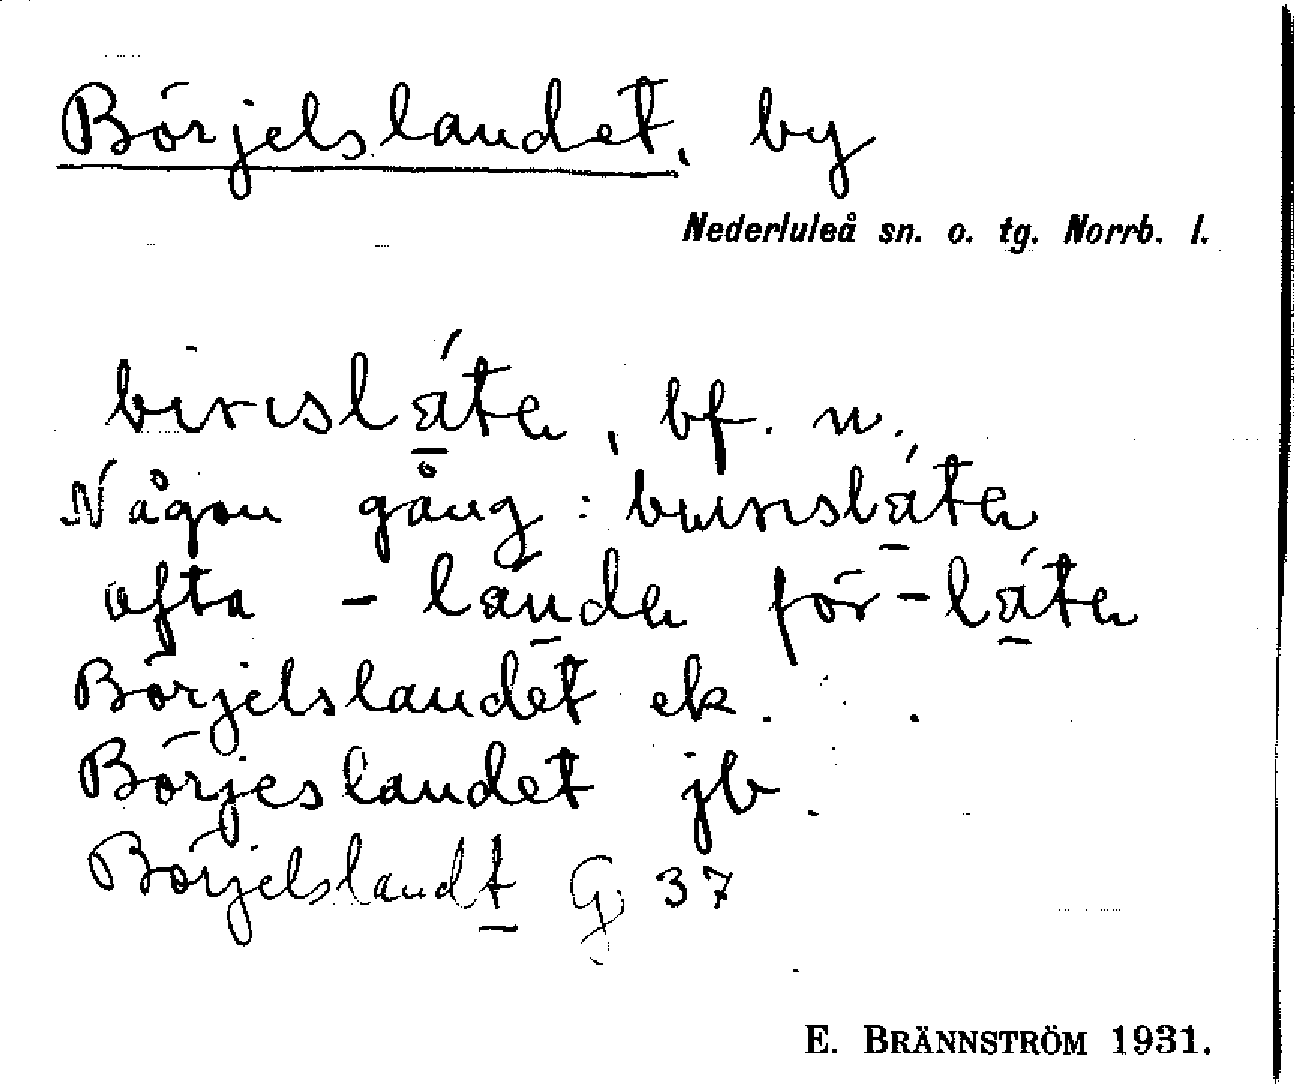 Börjelslandet, by
Nederluleå sn. o. tg. Norrb. l.
bf. n.
Någon gång:
ofta för
Börjelslandet ek.
Börjeslandet jb.
Börjelslandt G 37
E. BRÄNNSTRÖM 1931.